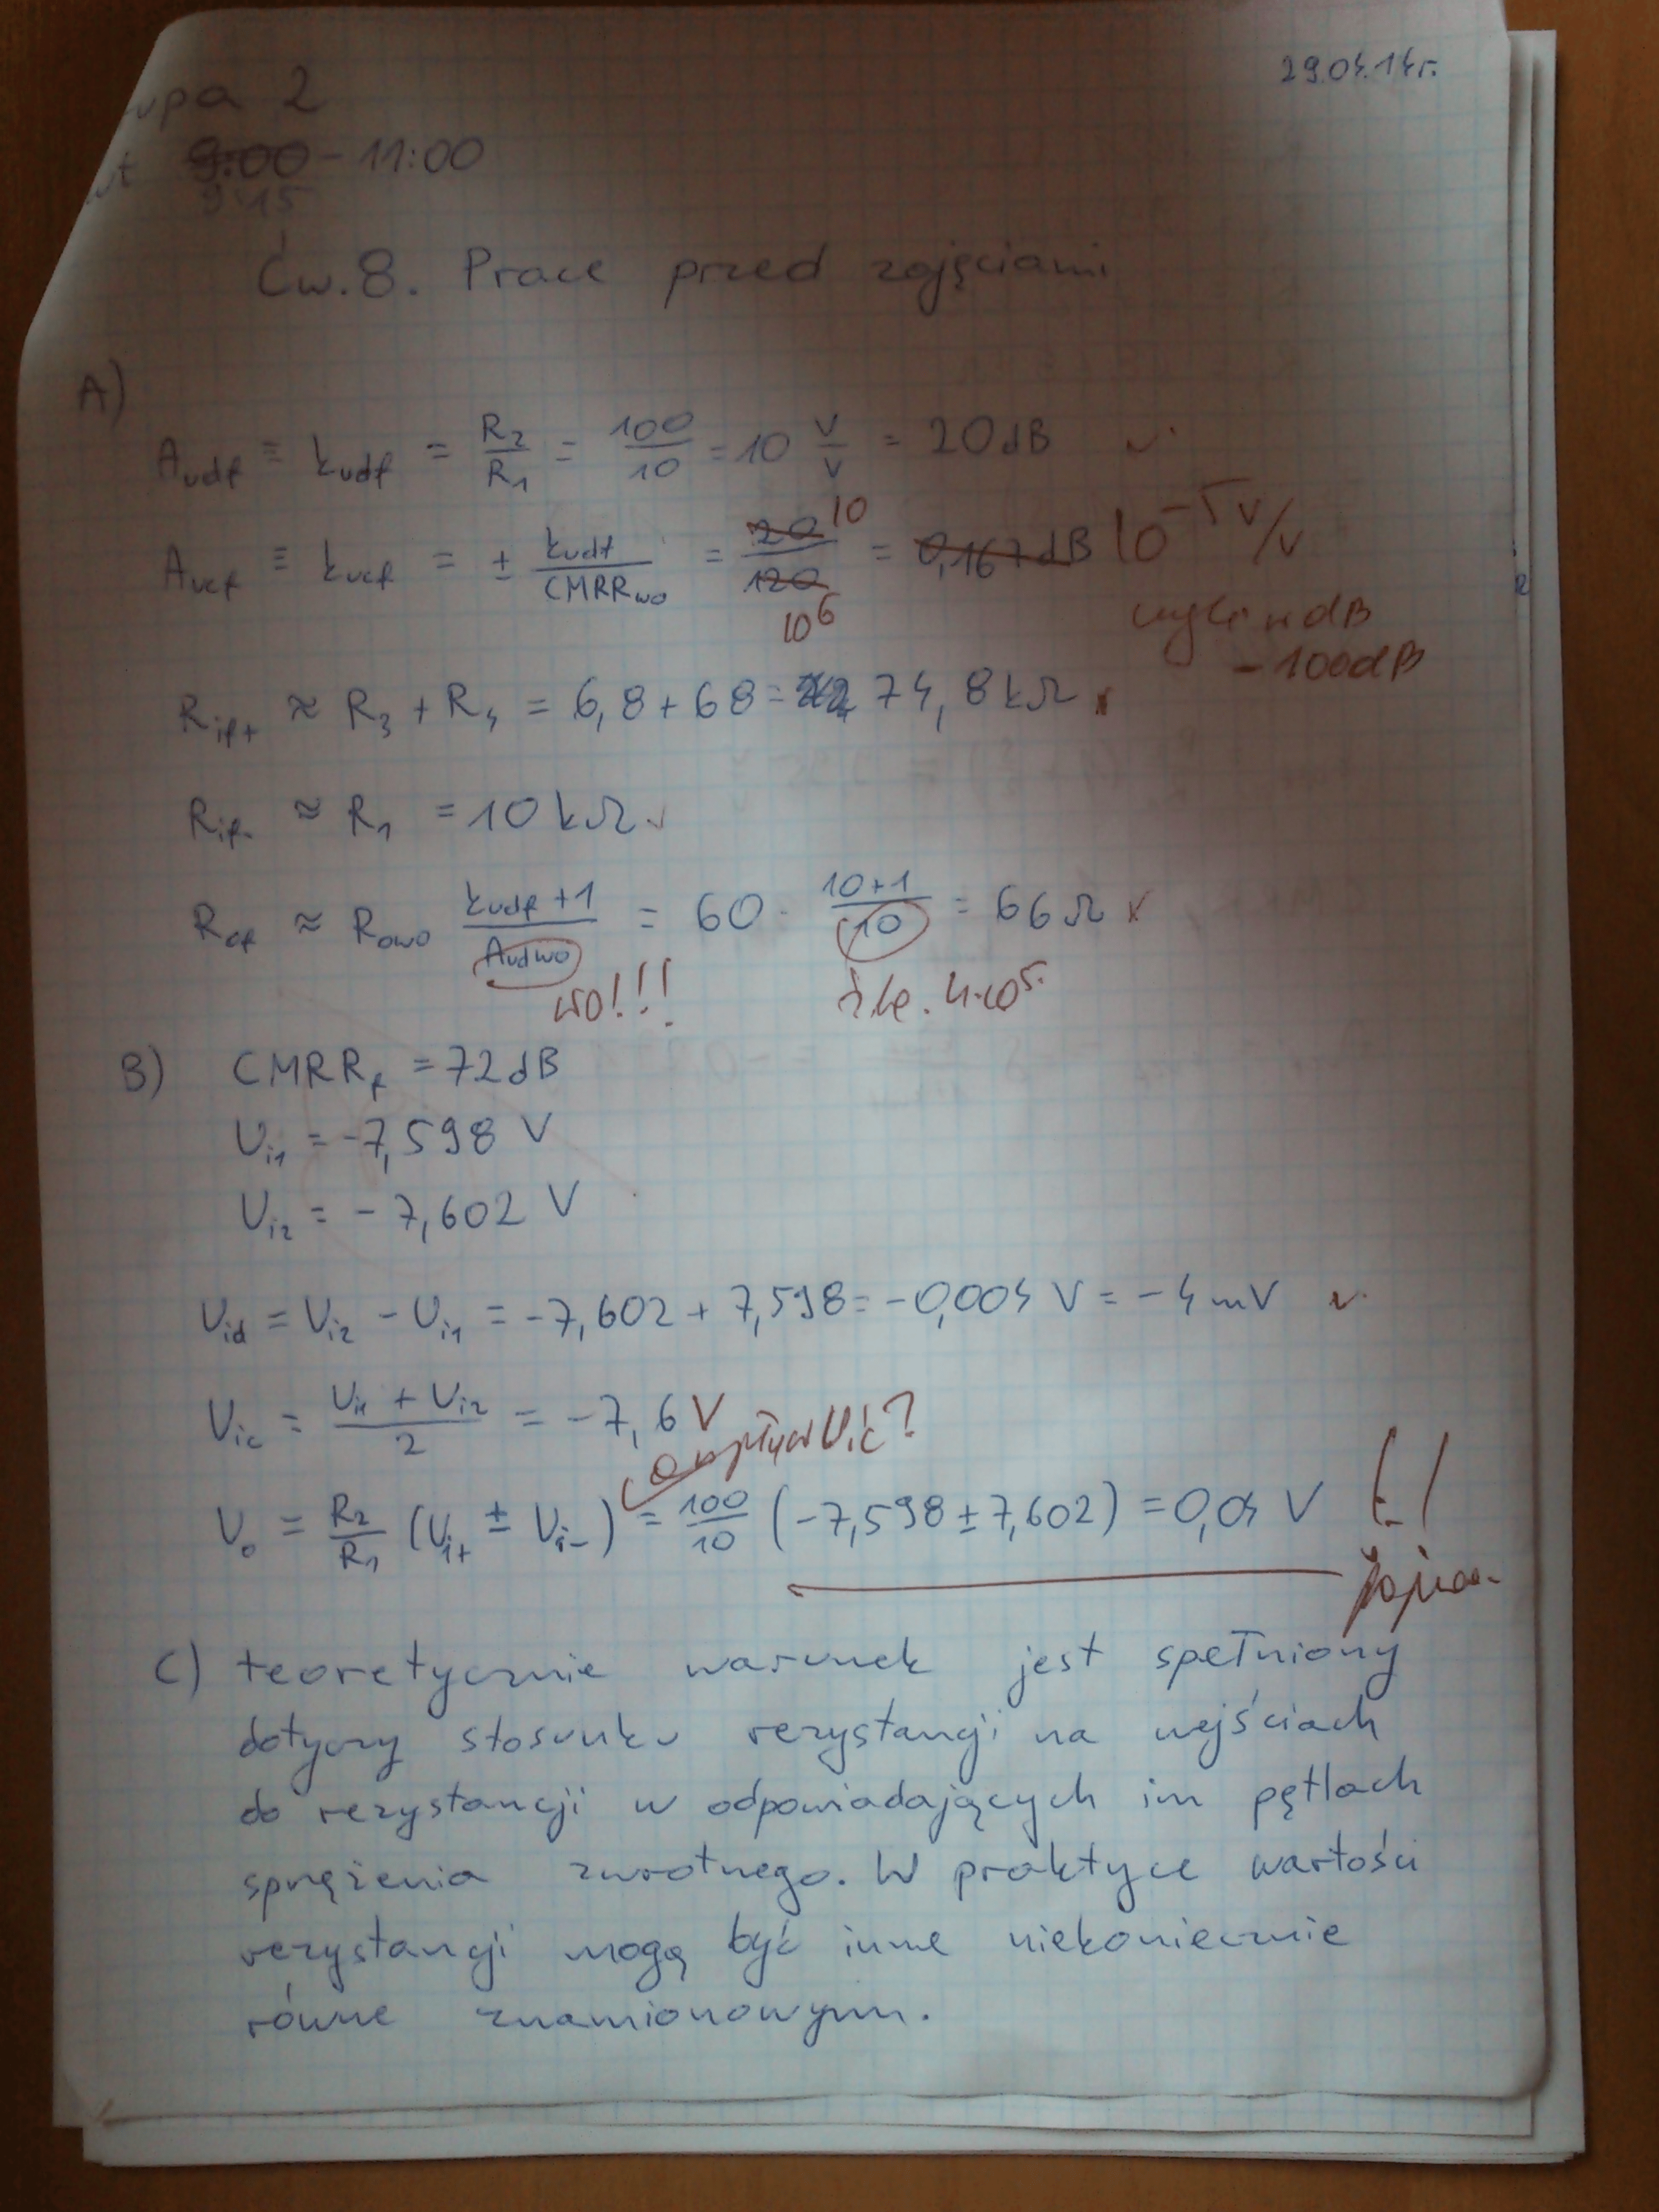 29.04.14r.
upa 2
wt 9:00 - 11:00
9:15
Ćw.8. Prace przed zajęciami
A)
Audf ≡ kudf = R2/R1 = 100/10 = 10 V/V = 20dB
Aucf ≡ kucf = ± kudf/CMRRwo = 20/120 = 0,167dB 10^-5 V/V
10
10^6
dB
-100dB
Rif+ ≈ R3 + R4 = 6,8 + 68 = 74,8 kΩ
Rif- ≈ R1 = 10 kΩ
Rof ≈ Rowo (kudf + 1)/Audwo = 60 · (10+1)/10 = 66 Ω
wo!!! źle. 4·10^5.
B) CMRRf = 72dB
Ui1 = -7,598 V
Ui2 = -7,602 V
Uid = Ui2 - Ui1 = -7,602 + 7,598 = -0,004 V = -4 mV
Uic = (Ui1 + Ui2)/2 = -7,6 V
a wpływ Uic?
Uo = R2/R1 (Ui+ ± Ui-) = 100/10 (-7,598 ± 7,602) = 0,04 V
C) teoretycznie warunek jest spełniony
dotyczy stosunku rezystancji na wejściach
do rezystancji w odpowiadających im pętlach
sprzężenia zwrotnego. W praktyce wartości
rezystancji mogą być inne niekoniecznie
równe znamionowym.